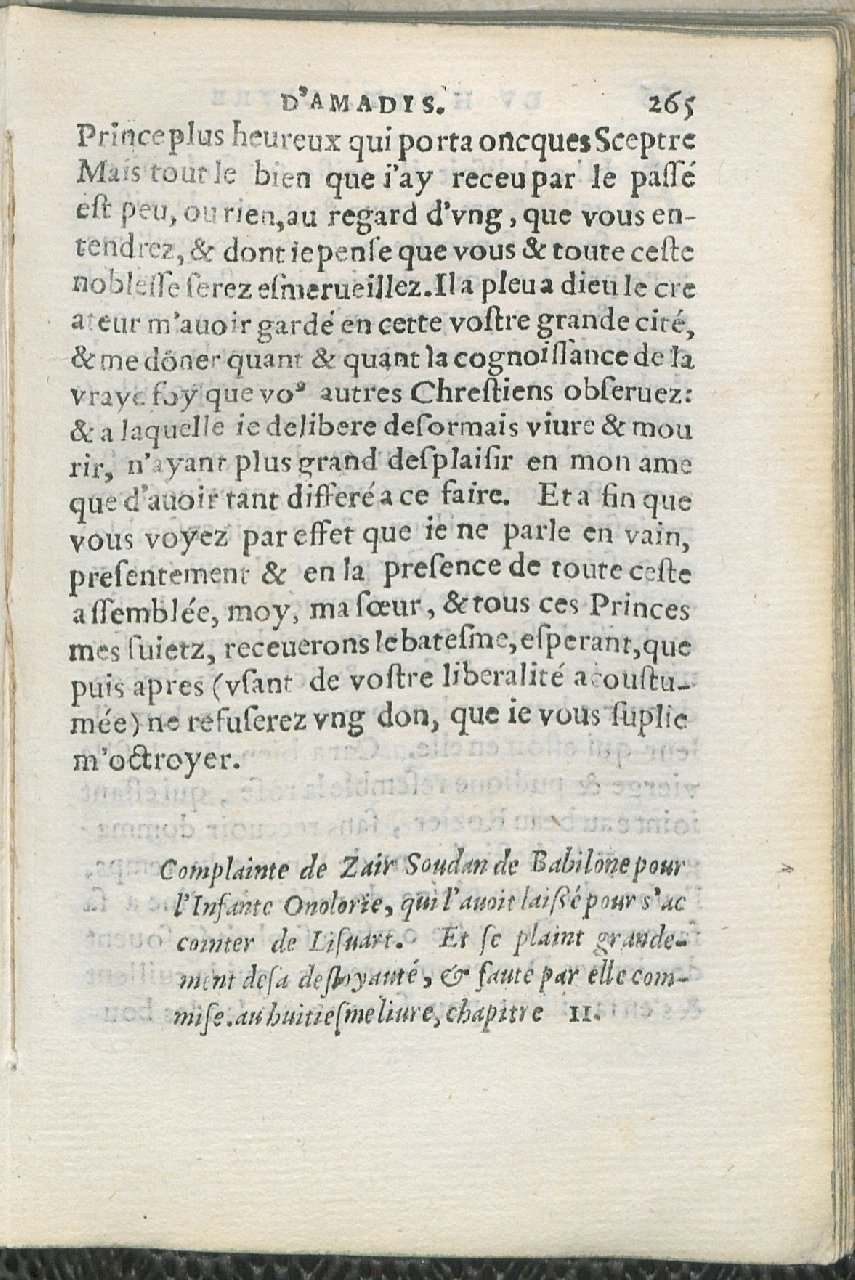 D'AMADIS. 265
Prince plus heureux qui porta oncques Sceptre
Mais tout le bien que i'ay receu par le passé
est peu, ou rien, au regard d'vng, que vous en-
tendrez, & dont ie pense que vous & toute ceste
noblesse serez esmerueillez. Il a pleu a dieu le cre
ateur m'auoir gardé en cette vostre grande cité,
& me dõner quant & quant la cognoissance de la
vraye foy que voꝰ autres Chrestiens obseruez:
& a laquelle ie delibere desormais viure & mou
rir, n'ayant plus grand desplaisir en mon ame
que d'auoir tant differé a ce faire. Et a fin que
vous voyez par effet que ie ne parle en vain,
presentement & en la presence de toute ceste
assemblée, moy, ma sœur, & tous ces Princes
mes suietz, receuerons le batesme, esperant, que
puis apres (vsant de vostre liberalité acoustu-
mée) ne refuserez vng don, que ie vous suplie
m'octroyer.
Complainte de Zair Soudan de Babilone pour
l'Infante Onolorie, qui l'auoit laissé pour s'ac
cointer de Lisuart. Et se plaint grande-
ment de sa desloyauté, & faute par elle com-
mise. au huitiesme liure, chapitre II.